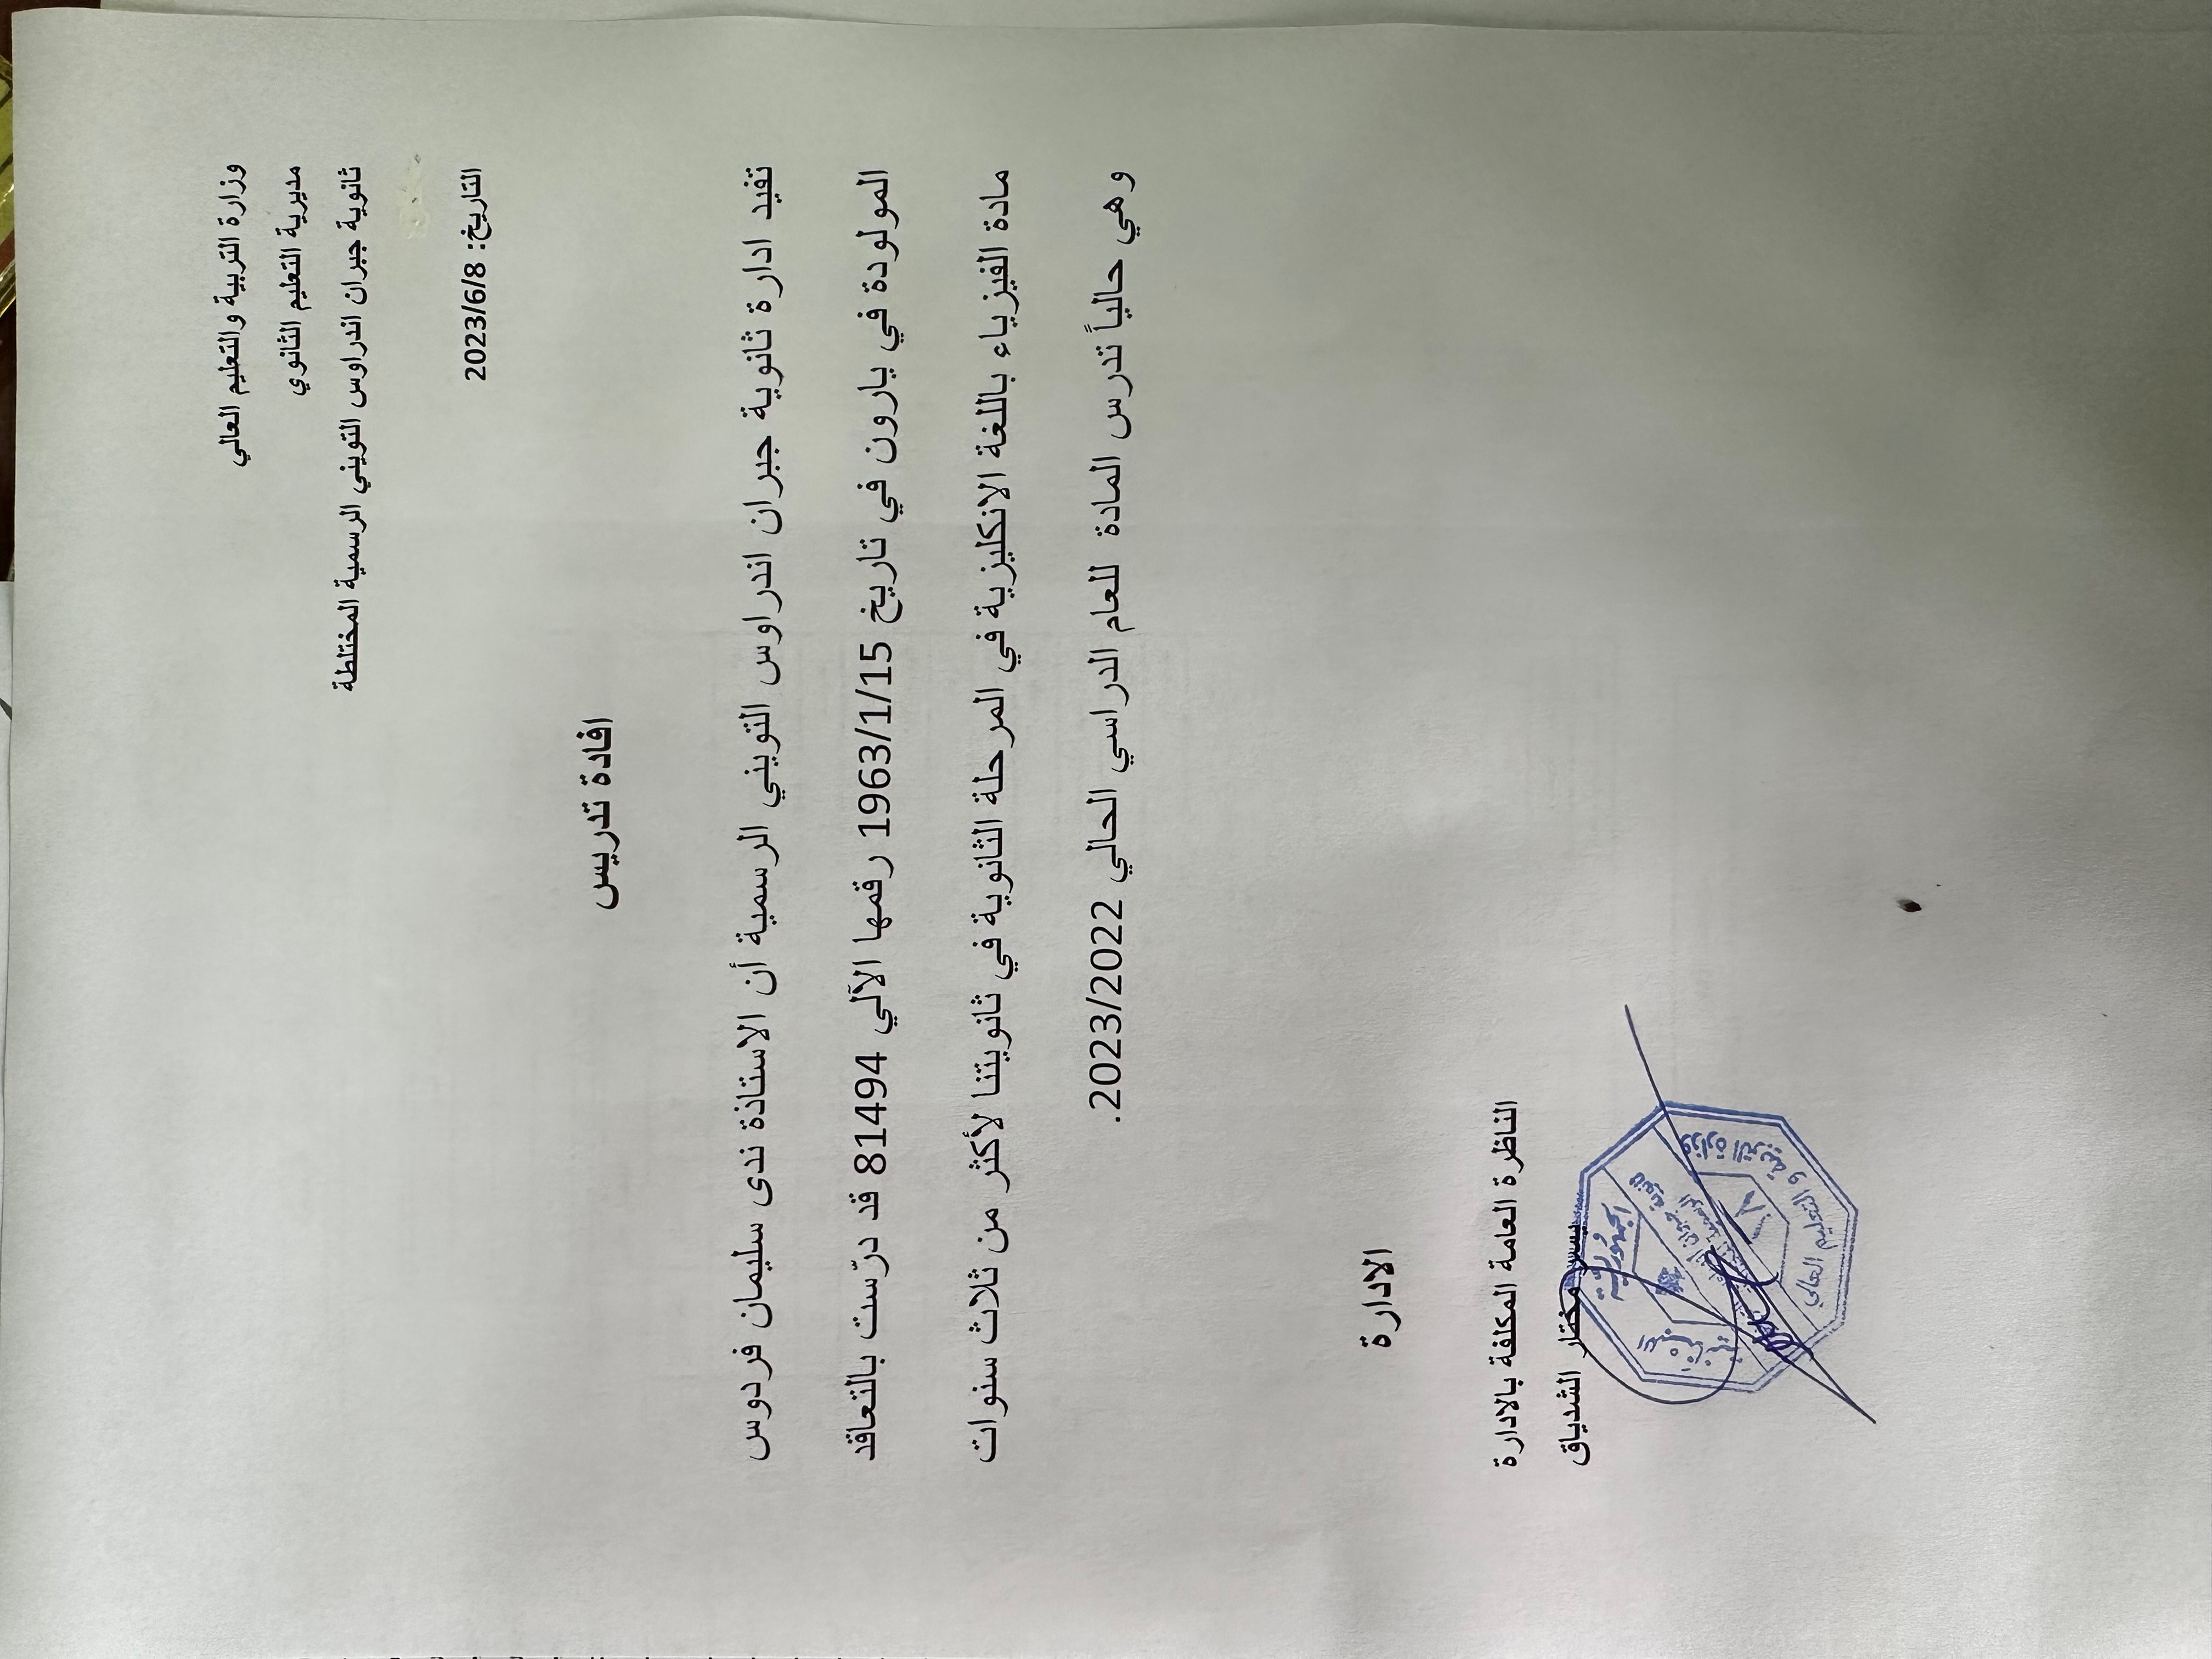 وزارة التربية والتعليم العالي
مديرية التعليم الثانوي
ثانوية جبران اندراوس التويني الرسمية المختلطة
التاريخ: 2023/6/8
افادة تدريس
تفيد ادارة ثانوية جبران اندراوس التويني الرسمية أن الاستاذة ندى سليمان فردوس
المولودة في يارون في تاريخ 1963/1/15 رقمها الآلي 81494 قد درّست بالتعاقد
مادة الفيزياء باللغة الانكليزية في المرحلة الثانوية في ثانويتنا لأكثر من ثلاث سنوات
وهي حالياً تدرس المادة للعام الدراسي الحالي 2023/2022.
الادارة
الناظرة العامة المكلفة بالادارة
مختار الشدياق
الجمهورية
وزارة التربية و التعليم العالي